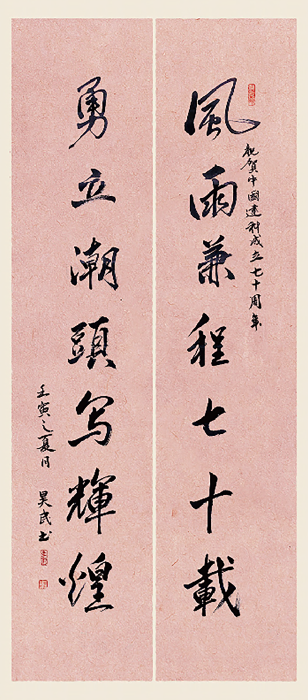 風雨兼程七十載
祝賀中國建科成立七十周年
勇立潮頭写輝煌
壬寅之夏月
昊民书